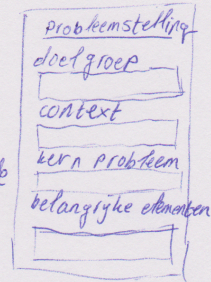 probleemstelling
doelgroep
context
kern probleem
belangrijke elementen